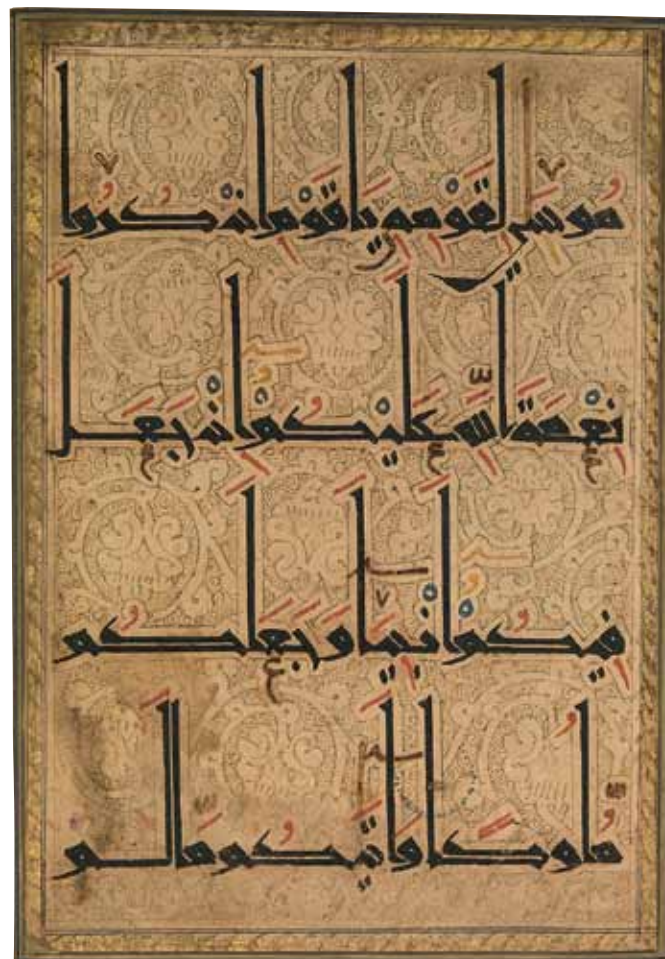 مُوسَى لِقَوْمِهِ يَا قَوْمِ اذْكُرُوا
نِعْمَةَ اللهِ عَلَيْكُمْ إِذْ جَعَلَ
فِيكُمْ أَنْبِيَاءَ وَجَعَلَكُمْ
مُلُوكًا وَآتَيكُمْ مَا لَمْ